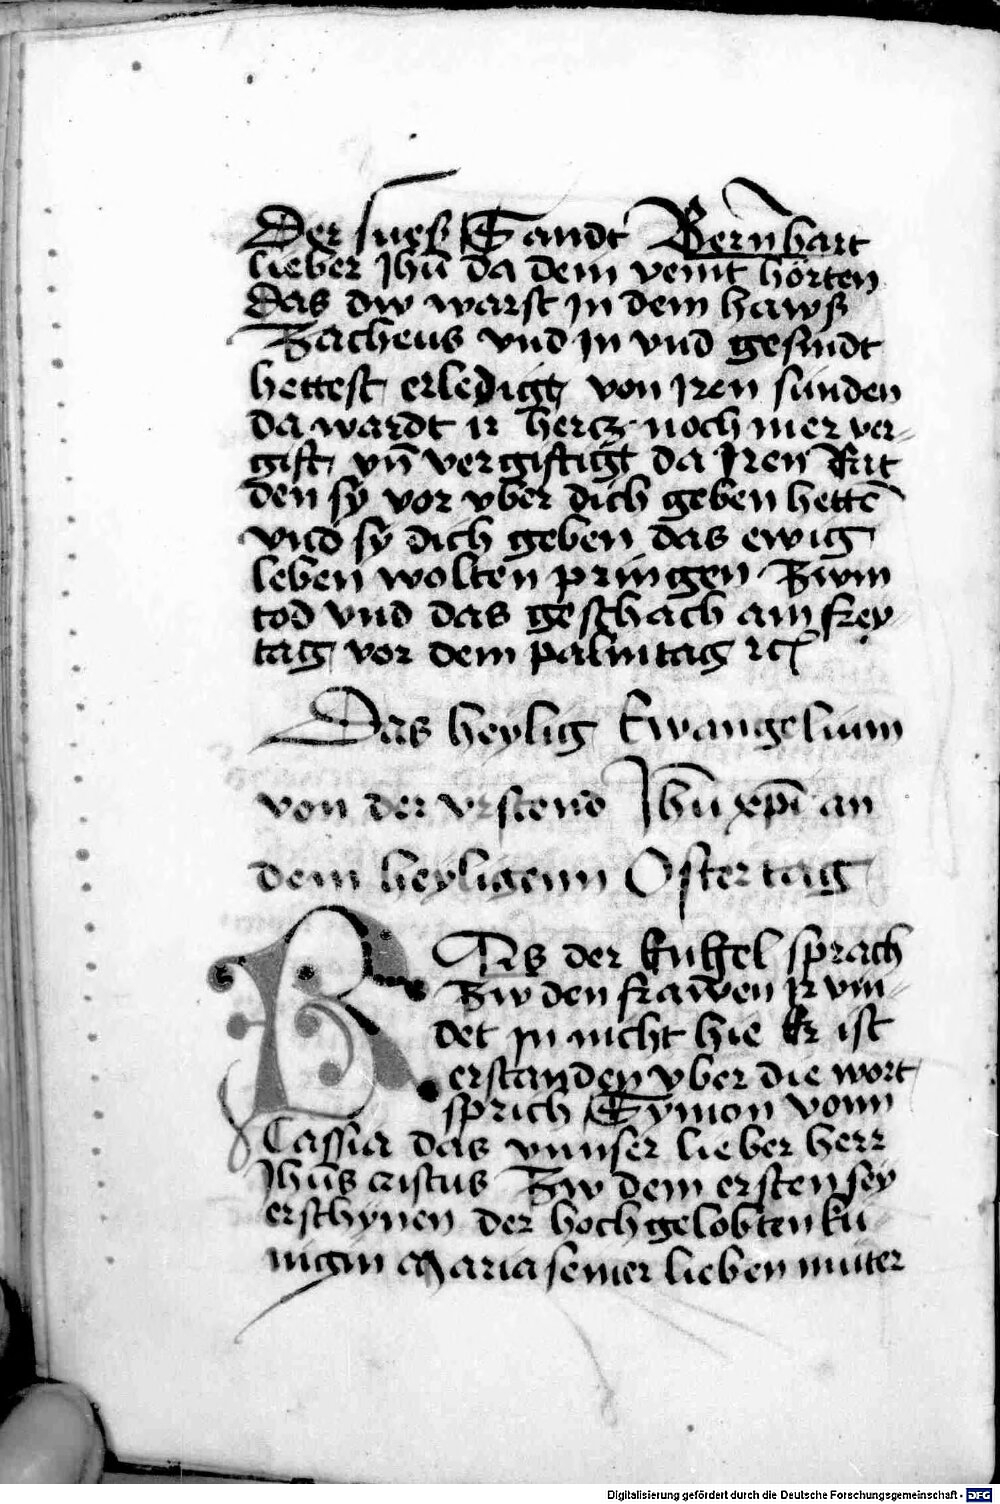 Der suess Sandt Bernhart
lieber Jhū da dein veint hörten
Das dw warst in dem hawß
Zacheus vnd in vnd gesindt
hettest erledigt von iren sünden
da wardt ir hertz noch mer ver-
gift vn̄ vergiftigt da Iren Rat
den sy vor vber dich geben hettē
vnd sy dich geben das ewig
leben wolten pringen Zwm
tod vnd das geschach am frey-
tag vor dem palmtag ꝛc
Das heylig Ewangelium
von der vrstend Jhū xpī an
dem heyligenn Ostertag
Als der Enngel sprach
Zw den frawen Ir vin-
det in nicht hie Er ist
erstanden vber die wort
sprich Symon vonn
Cassia das vnnser lieber herr
Jhūs cristus Zw dem ersten sey
erschynen der hochgelobten kü-
nigin Maria seiner lieben muter
Digitalisierung gefördert durch die Deutsche Forschungsgemeinschaft - DFG